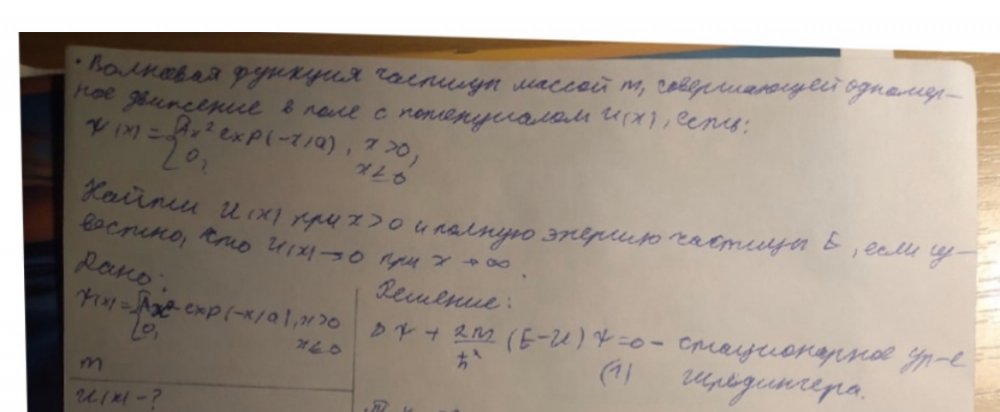 • Волновая функция частицы массой m, совершающей одномер-
ное движение в поле с потенциалом U(x), есть:
Ψ(x) = { Ax² exp(-x/a), x>0,
0, x≤0
Найти U(x) при x>0 и полную энергию частицы E, если из-
вестно, что U(x)→0 при x→∞.
Дано:
Ψ(x) = { Ax² exp(-x/a), x>0
0, x≤0
m
U(x) - ?
Решение:
ΔΨ + 2m/ħ² (E-U) Ψ=0 - стационарное ур-е
(1) Шрёдингера.